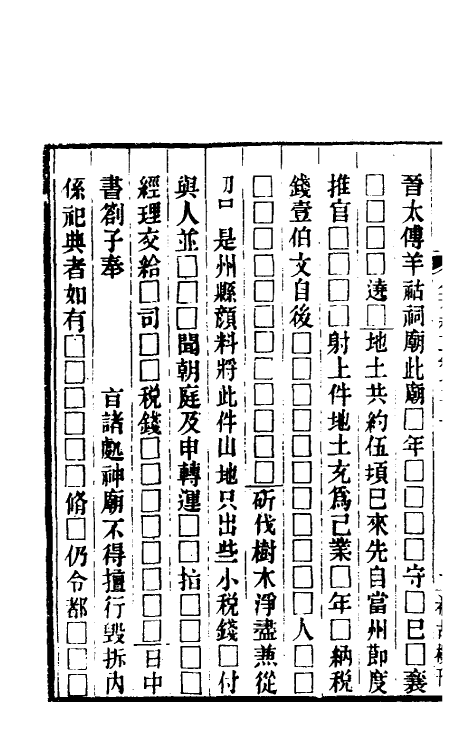 晉太傅羊祜祠廟此廟□年□□□□守□巳□襄
□□□□遶□地土共約伍頃巳來先自當州節度
推官□□□□射上件地土充爲巳業□年□納稅
錢壹伯文自後□□□□□□□□□□□人□□
□□□□□□□□□□□□斫伐樹木淨盡兼從
是州縣顔料將此件山地只出些小稅錢□付
與人並□□□聞朝庭及申轉運□□拍□□□□
經理交給□司□□稅錢□□□□□□□□日中
書劄子奉　旨諸處神廟不得擅行毀拆内
係祀典者如有□□□□□□脩□仍令都□□□